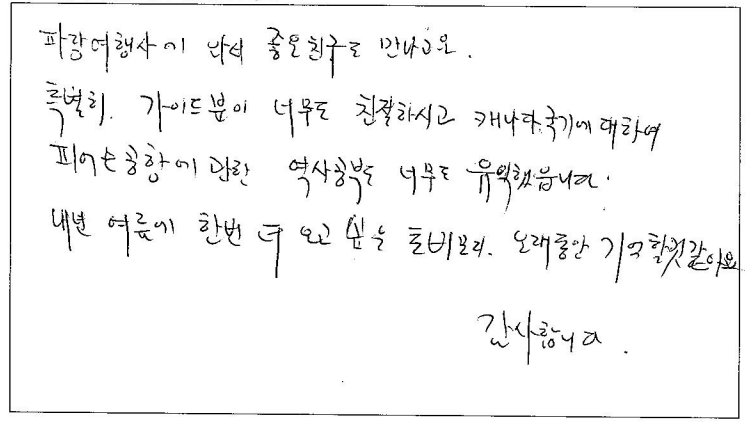 파랑여행사에 와서 좋은친구도 만나고요.
특별히. 가이드분이 너무도 친절하시고 캐나다.국기에 대하여
피어슨공항에 관한 역사공부도 너무도 유익했읍니다.
내년 여름에 한번 더 오고 싶은 토버모리. 오래동안 기억할것같아요
감사합니다.